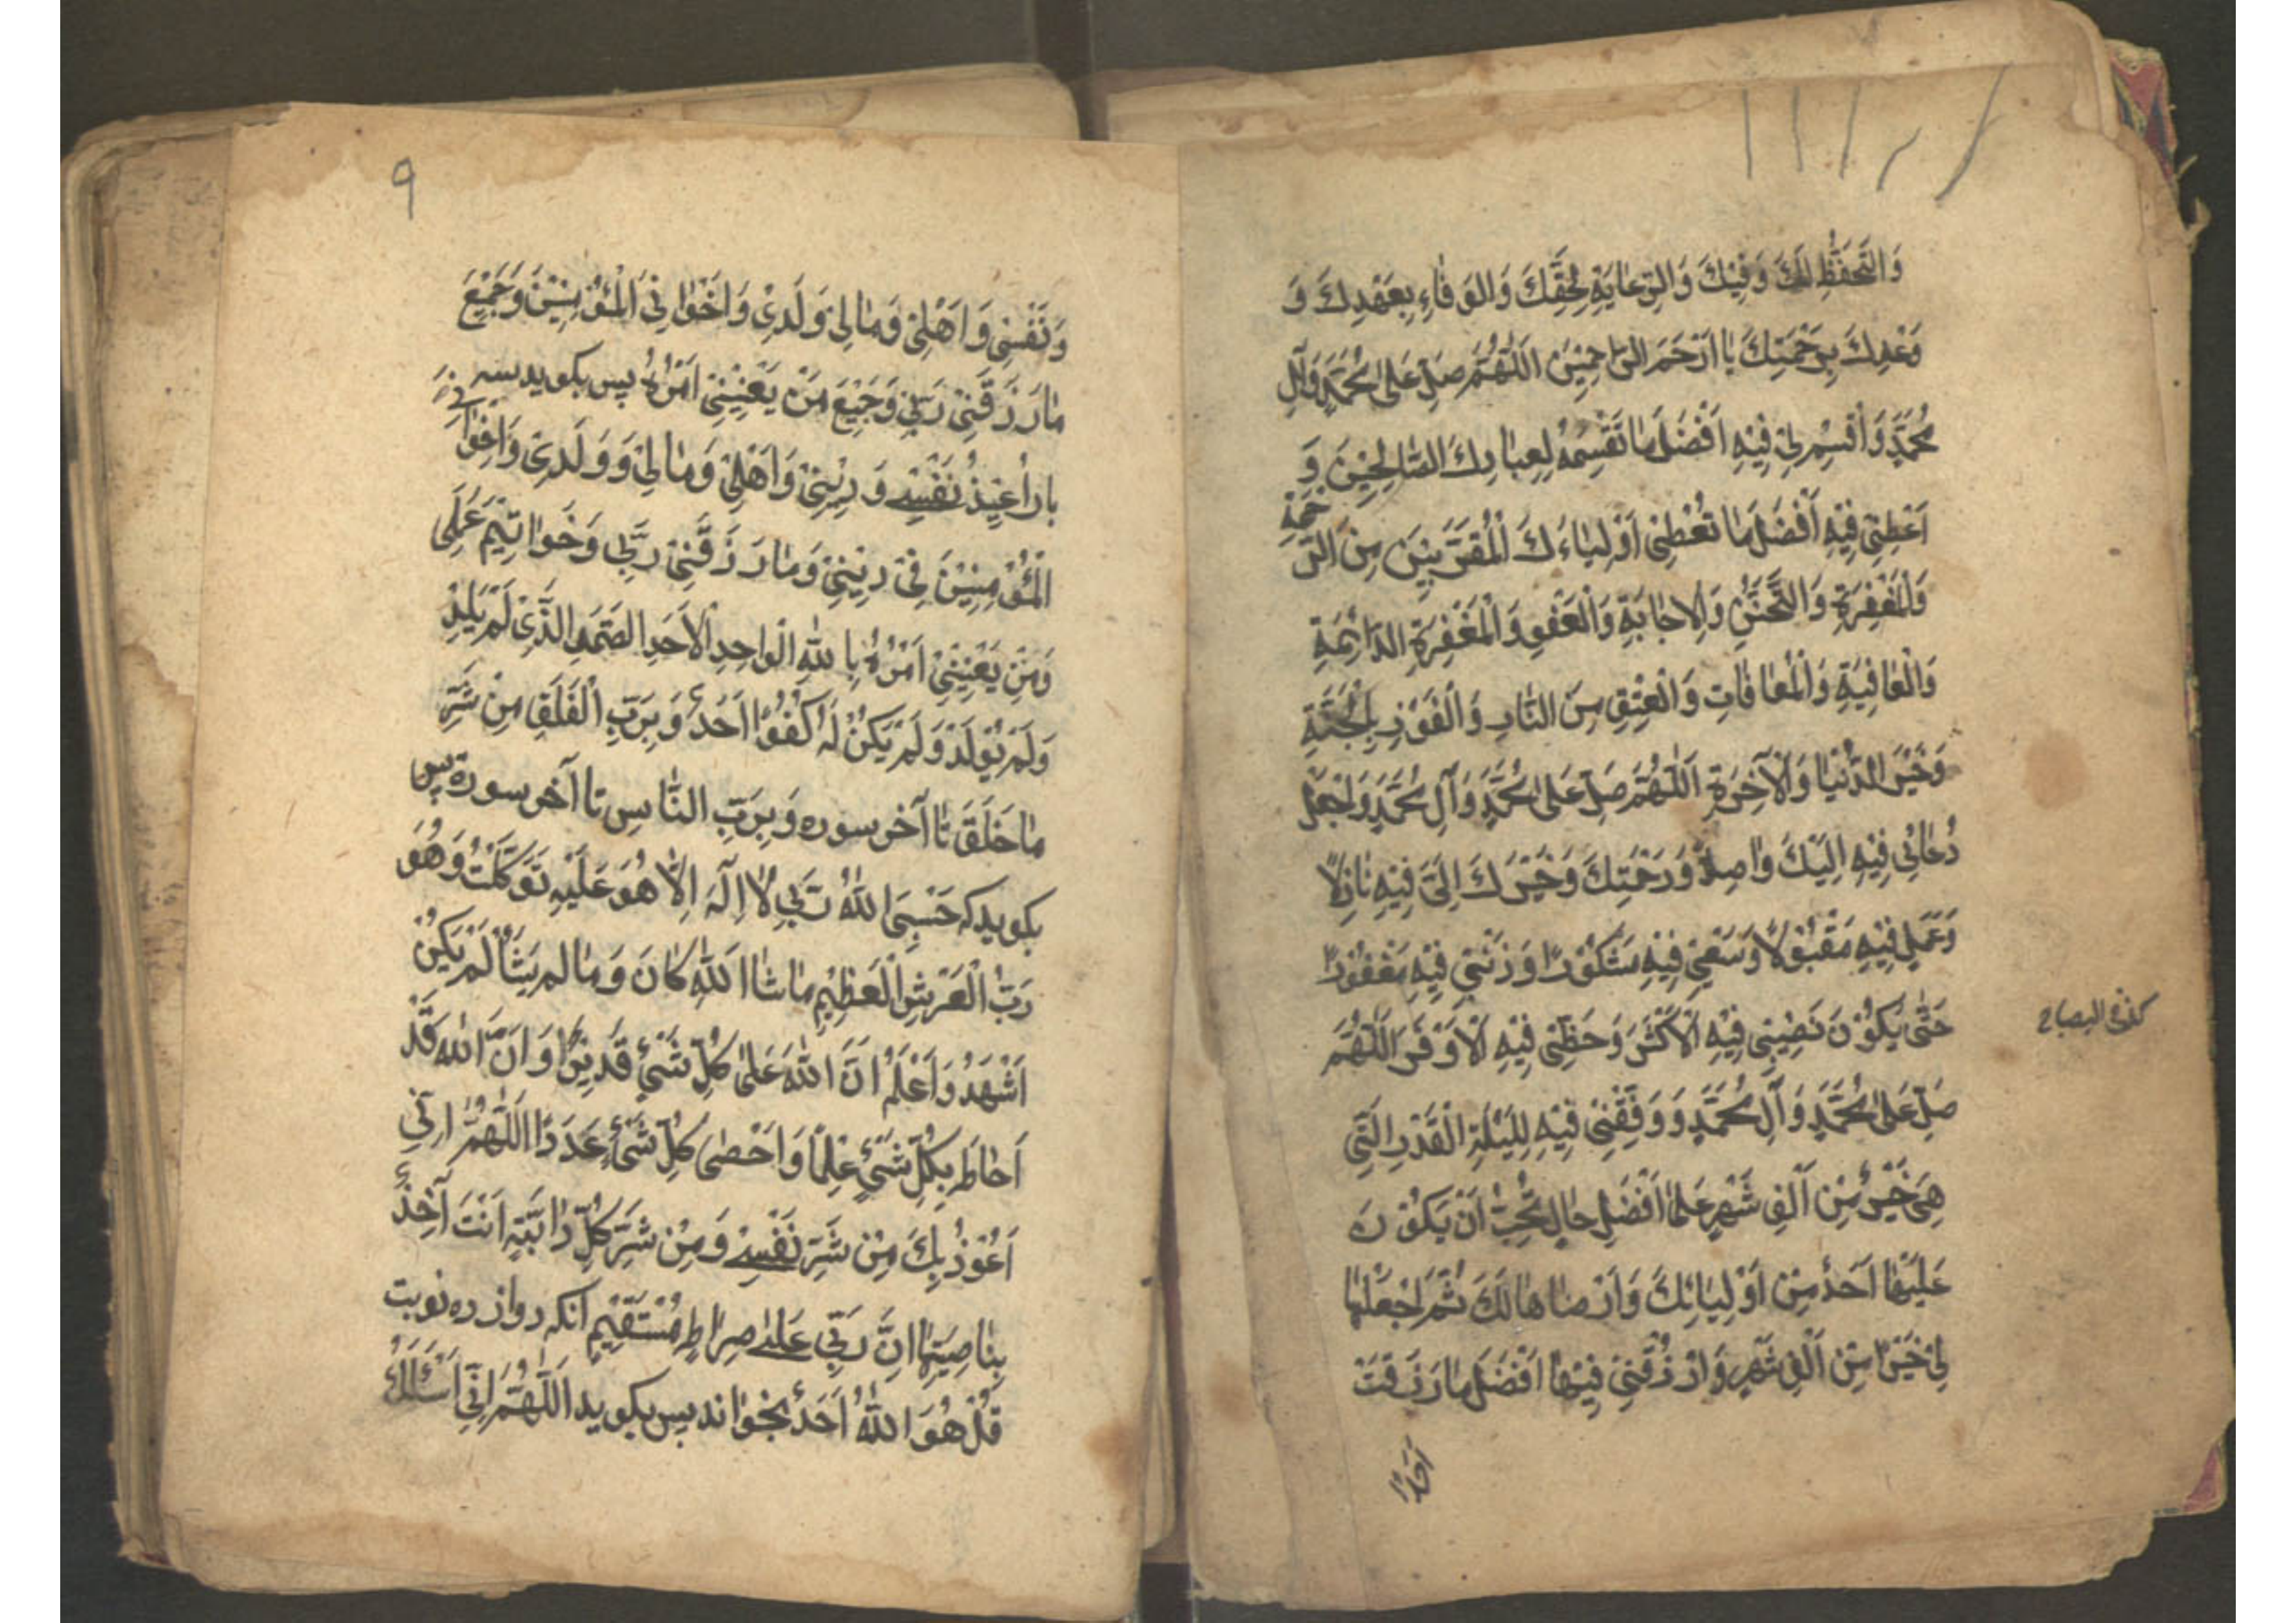 وَالتَّحَفُّظِ لَكَ وَفِيْكَ وَالرِّعَايَةِ لِحَقِّكَ وَالوَفَاءِ بِعَهْدِكَ وَ
وَعْدِكَ بِرَحْمَتِكَ يَا اَرْحَمَ الرَّاحِمِيْنَ اَللّٰهُمَّ صَلِّ عَلٰى مُحَمَّدٍ وَآلِ
مُحَمَّدٍ وَاَقْسِمْ لِيْ فِيْهِ اَفْضَلَ مَا تَقْسِمُهُ لِعِبَادِكَ الصَّالِحِيْنَ وَ
اَعْطِنِيْ فِيْهِ اَفْضَلَ مَا تُعْطِيْ اَوْلِيَاءَكَ الْمُقَرَّبِيْنَ مِنَ الرَّحْمَةِ
وَالْمَغْفِرَةِ وَالتَّحَنُّنِ وَالاِجَابَةِ وَالْعَفْوِ وَالْمَغْفِرَةِ الدَّائِمَةِ
وَالْعَافِيَةِ وَالْمُعَافَاتِ وَالْعِتْقِ مِنَ النَّارِ وَالْفَوْزِ بِالْجَنَّةِ
وَخَيْرِ الدُّنْيَا وَالْآخِرَةِ اَللّٰهُمَّ صَلِّ عَلٰى مُحَمَّدٍ وَآلِ مُحَمَّدٍ وَاجْعَلْ
دُعَائِيْ فِيْهِ اِلَيْكَ وَاصِلاً وَرَحْمَتِكَ وَخَيْرَكَ اِلَيَّ فِيْهِ نَازِلاً
وَعَمَلِيْ فِيْهِ مَقْبُوْلاً وَسَعْيِيْ فِيْهِ مَشْكُوْرًا وَذَنْبِيْ فِيْهِ مَغْفُوْرًا
حَتّٰى يَكُوْنَ نَصِيْبِيْ فِيْهِ الْاَكْثَرَ وَحَظِّيْ فِيْهِ الْاَوْفَرَ اَللّٰهُمَّ
صَلِّ عَلٰى مُحَمَّدٍ وَآلِ مُحَمَّدٍ وَوَفِّقْنِيْ فِيْهِ لِلَيْلَةِ الْقَدْرِ الَّتِيْ
هِيَ خَيْرٌ مِّنْ اَلْفِ شَهْرٍ عَلٰى اَفْضَلِ حَالٍ تُحِبُّ اَنْ يَكُوْنَ
عَلَيْهَا اَحَدٌ مِنْ اَوْلِيَائِكَ وَاَرْضَاهَا لَكَ ثُمَّ اجْعَلْهَا
لِيْ خَيْرًا مِنْ اَلْفِ شَهْرٍ وَارْزُقْنِيْ فِيْهَا اَفْضَلَ مَا رَزَقْتَ
اَحَدًا
۹
وَنَفْسِيْ وَاَهْلِيْ وَمَالِيْ وَلَدِيْ وَاَخْوَانِيْ الْمُؤْمِنِيْنَ وَجَمِيْعَ
مَا رَزَقَنِيْ رَبِّيْ وَجَمِيْعَ مَنْ يَعْنِيْنِيْ اَمْرُهُ پس بكويد سه
بار اُعِيْذُ نَفْسِيْ وَدِيْنِيْ وَاَهْلِيْ وَمَالِيْ وَوَلَدِيْ وَاِخْوَانِيْ
الْمُؤْمِنِيْنَ فِيْ دِيْنِيْ وَمَا رَزَقَنِيْ رَبِّيْ وَخَوَاتِيْمَ عَمَلِيْ
وَمَنْ يَعْنِيْنِيْ اَمْرُهُ بِاللّٰهِ الْوَاحِدِ الْاَحَدِ الصَّمَدِ الَّذِيْ لَمْ يَلِدْ
وَلَمْ يُوْلَدْ وَلَمْ يَكُنْ لَهُ كُفُوًا اَحَدٌ وَبِرَبِّ الْفَلَقِ مِنْ شَرِّ
مَا خَلَقَ تا آخر سوره وَبِرَبِّ النَّاسِ تا آخر سورة پس
بكويد كه حَسْبِيَ اللّٰهُ رَبِّيْ لَا اِلٰهَ اِلَّا هُوَ عَلَيْهِ تَوَكَّلْتُ وَهُوَ
رَبُّ الْعَرْشِ الْعَظِيْمِ مَا شَاءَ اللّٰهُ كَانَ وَمَا لَمْ يَشَأْ لَمْ يَكُنْ
اَشْهَدُ وَاَعْلَمُ اَنَّ اللّٰهَ عَلٰى كُلِّ شَيْءٍ قَدِيْرٌ وَاَنَّ اللّٰهَ قَدْ
اَحَاطَ بِكُلِّ شَيْءٍ عِلْمًا وَاَحْصٰى كُلَّ شَيْءٍ عَدَدًا اَللّٰهُمَّ اِنِّيْ
اَعُوْذُ بِكَ مِنْ شَرِّ نَفْسِيْ وَمِنْ شَرِّ كُلِّ دَابَّةٍ اَنْتَ آخِذٌ
بِنَاصِيَتِهَا اِنَّ رَبِّيْ عَلٰى صِرَاطٍ مُسْتَقِيْمٍ آنكه دوازده نوبت
قُلْ هُوَ اللّٰهُ اَحَدٌ بخواند پس بكويد اَللّٰهُمَّ اِنِّيْ اَسْئَلُكَ